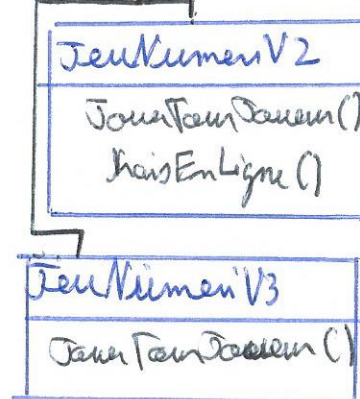 JeuNumeriV2
JouerTourJoueur()
troisEnLigne()
JeuNumeriV3
JouerTourJoueur()